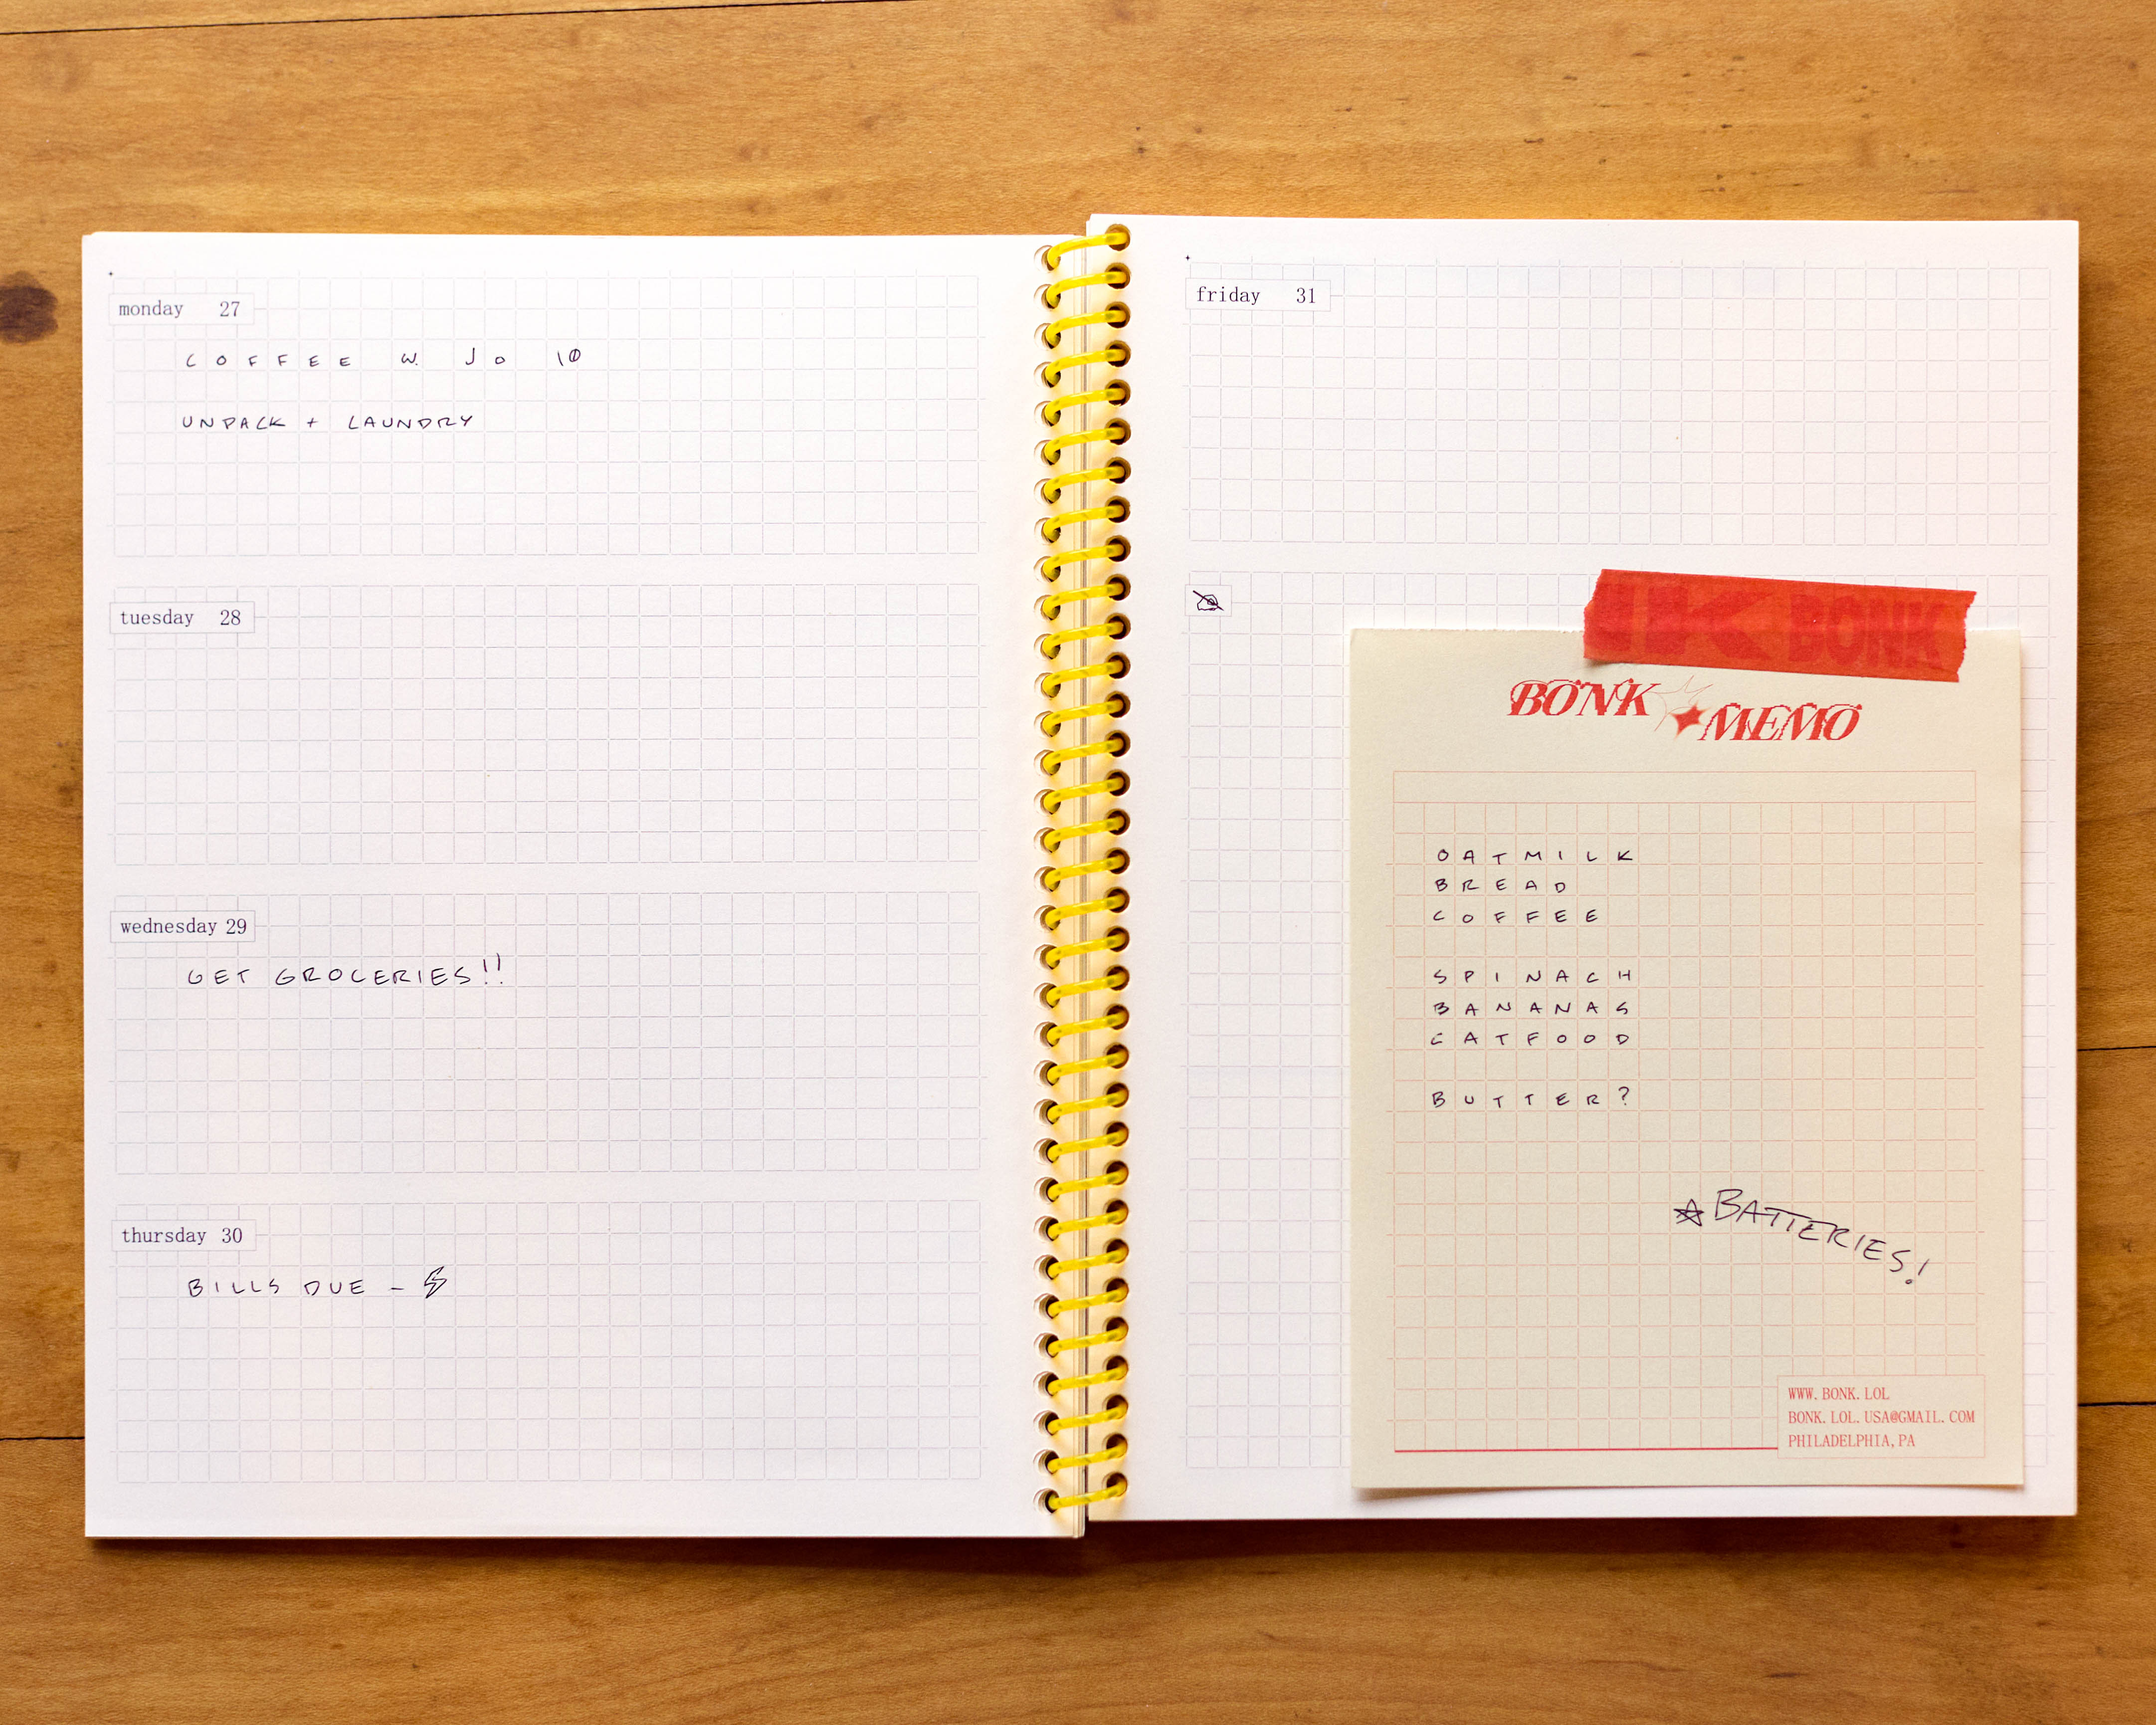 monday 27
COFFEE W. JO 10
UNPACK + LAUNDRY
tuesday 28
wednesday 29
GET GROCERIES!!
thursday 30
BILLS DUE –
friday 31
BONK
BONK MEMO
OATMILK
BREAD
COFFEE
SPINACH
BANANAS
CATFOOD
BUTTER?
BATTERIES!
WWW.BONK.LOL
BONK.LOL.USA@GMAIL.COM
PHILADELPHIA, PA